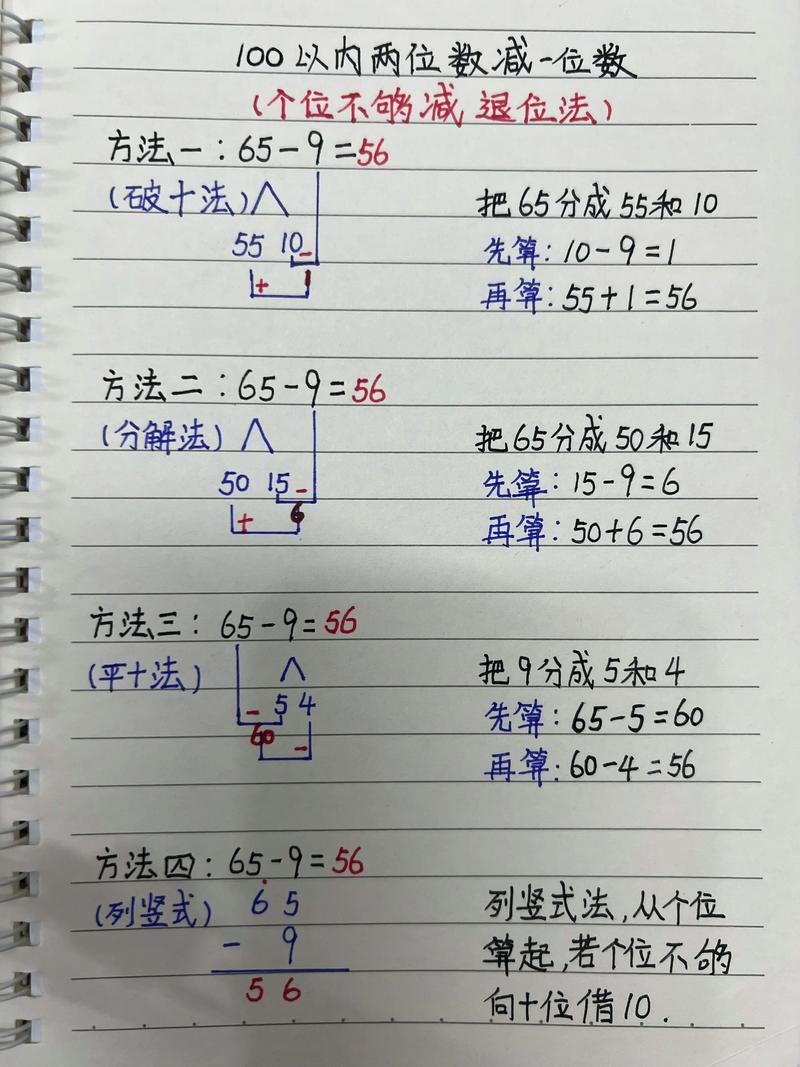 100以内两位数减一位数
(个位不够减 退位法)
方法一:65-9=56
(破十法)
把65分成55和10
55 10 -
先算:10-9=1
+ 1
再算:55+1=56
方法二:65-9=56
(分解法)
把65分成50和15
50 15 -
先算:15-9=6
+ 6
再算:50+6=56
方法三:65-9=56
(平十法)
把9分成5和4
- 5 4
先算:65-5=60
60 -
再算:60-4=56
方法四:65-9=56
(列竖式)
6 5
- 9
5 6
列竖式法,从个位
算起,若个位不够
向十位借10.